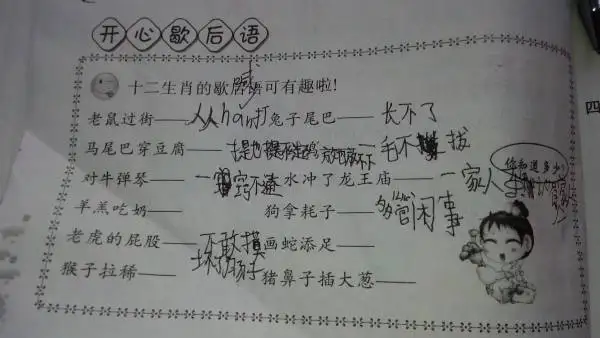 开心歇后语
十二生肖的歇后语可有趣啦!
老鼠过街——人人han打 兔子尾巴——长不了
马尾巴穿豆腐—— 一毛不拔
对牛弹琴——一窍不通 大水冲了龙王庙——一家人
你知道多少
羊羔吃奶—— 狗拿耗子——多管闲事
老虎的屁股——不敢摸 画蛇添足——
猴子拉稀——坏肠子 猪鼻子插大葱——
四